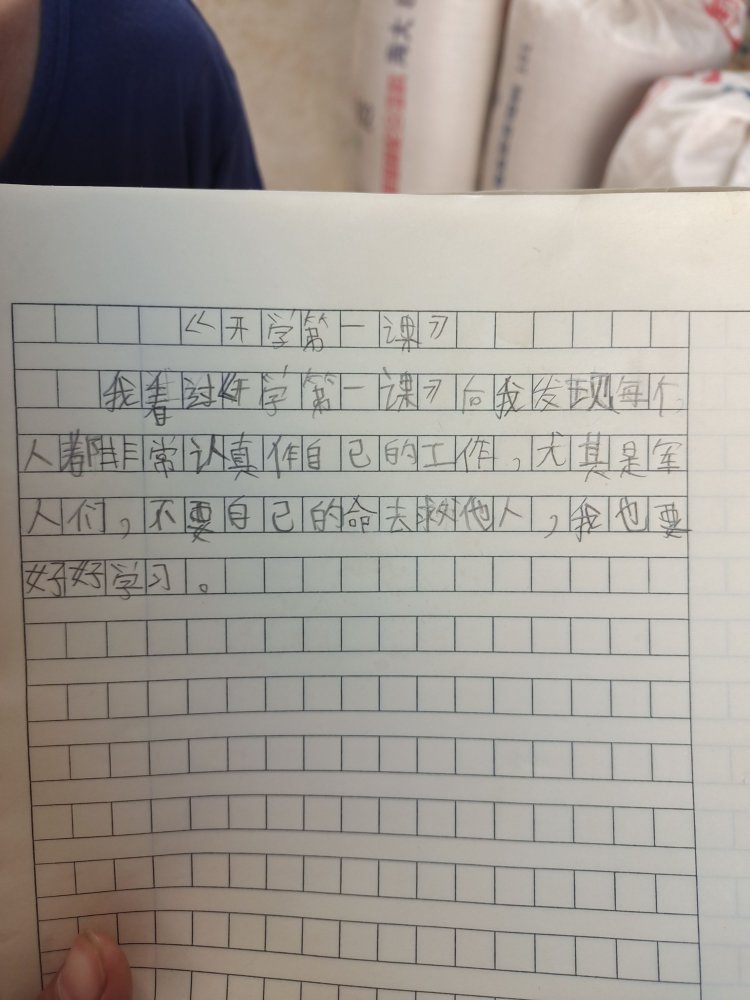 海大
《开学第一课》
我看过《开学第一课》后我发现每个
人都非常认真作自己的工作，尤其是军
人们，不要自己的命去救他人，我也要
好好学习。